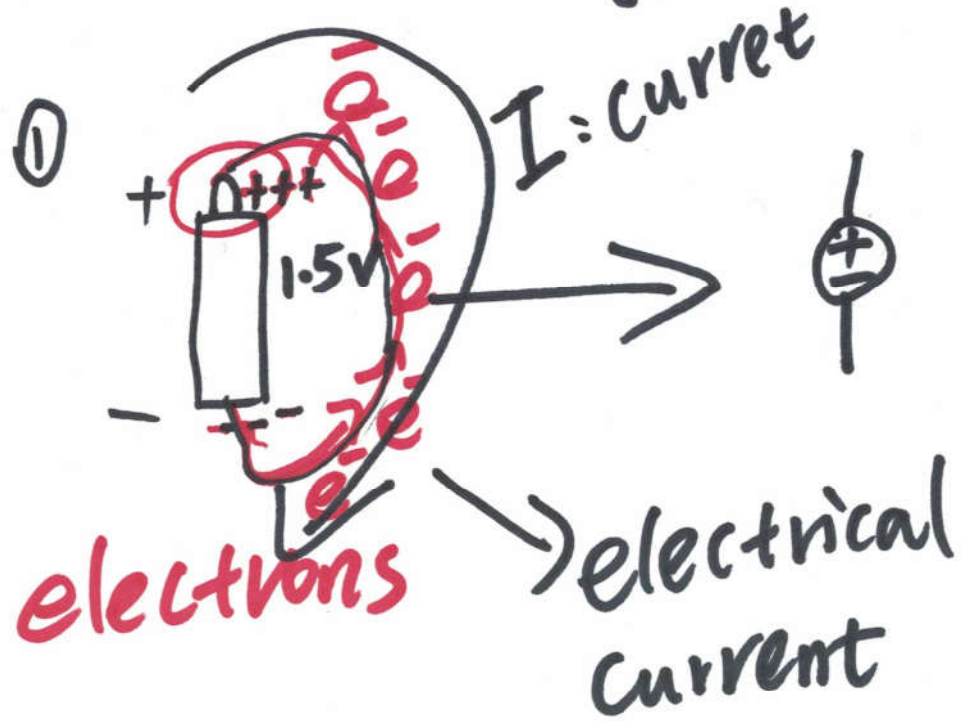 ①
I: curret
+
+++
1.5V
−
---
e⁻
e⁻
e⁻
e⁻
e⁻
+
−
electrons
electrical
current